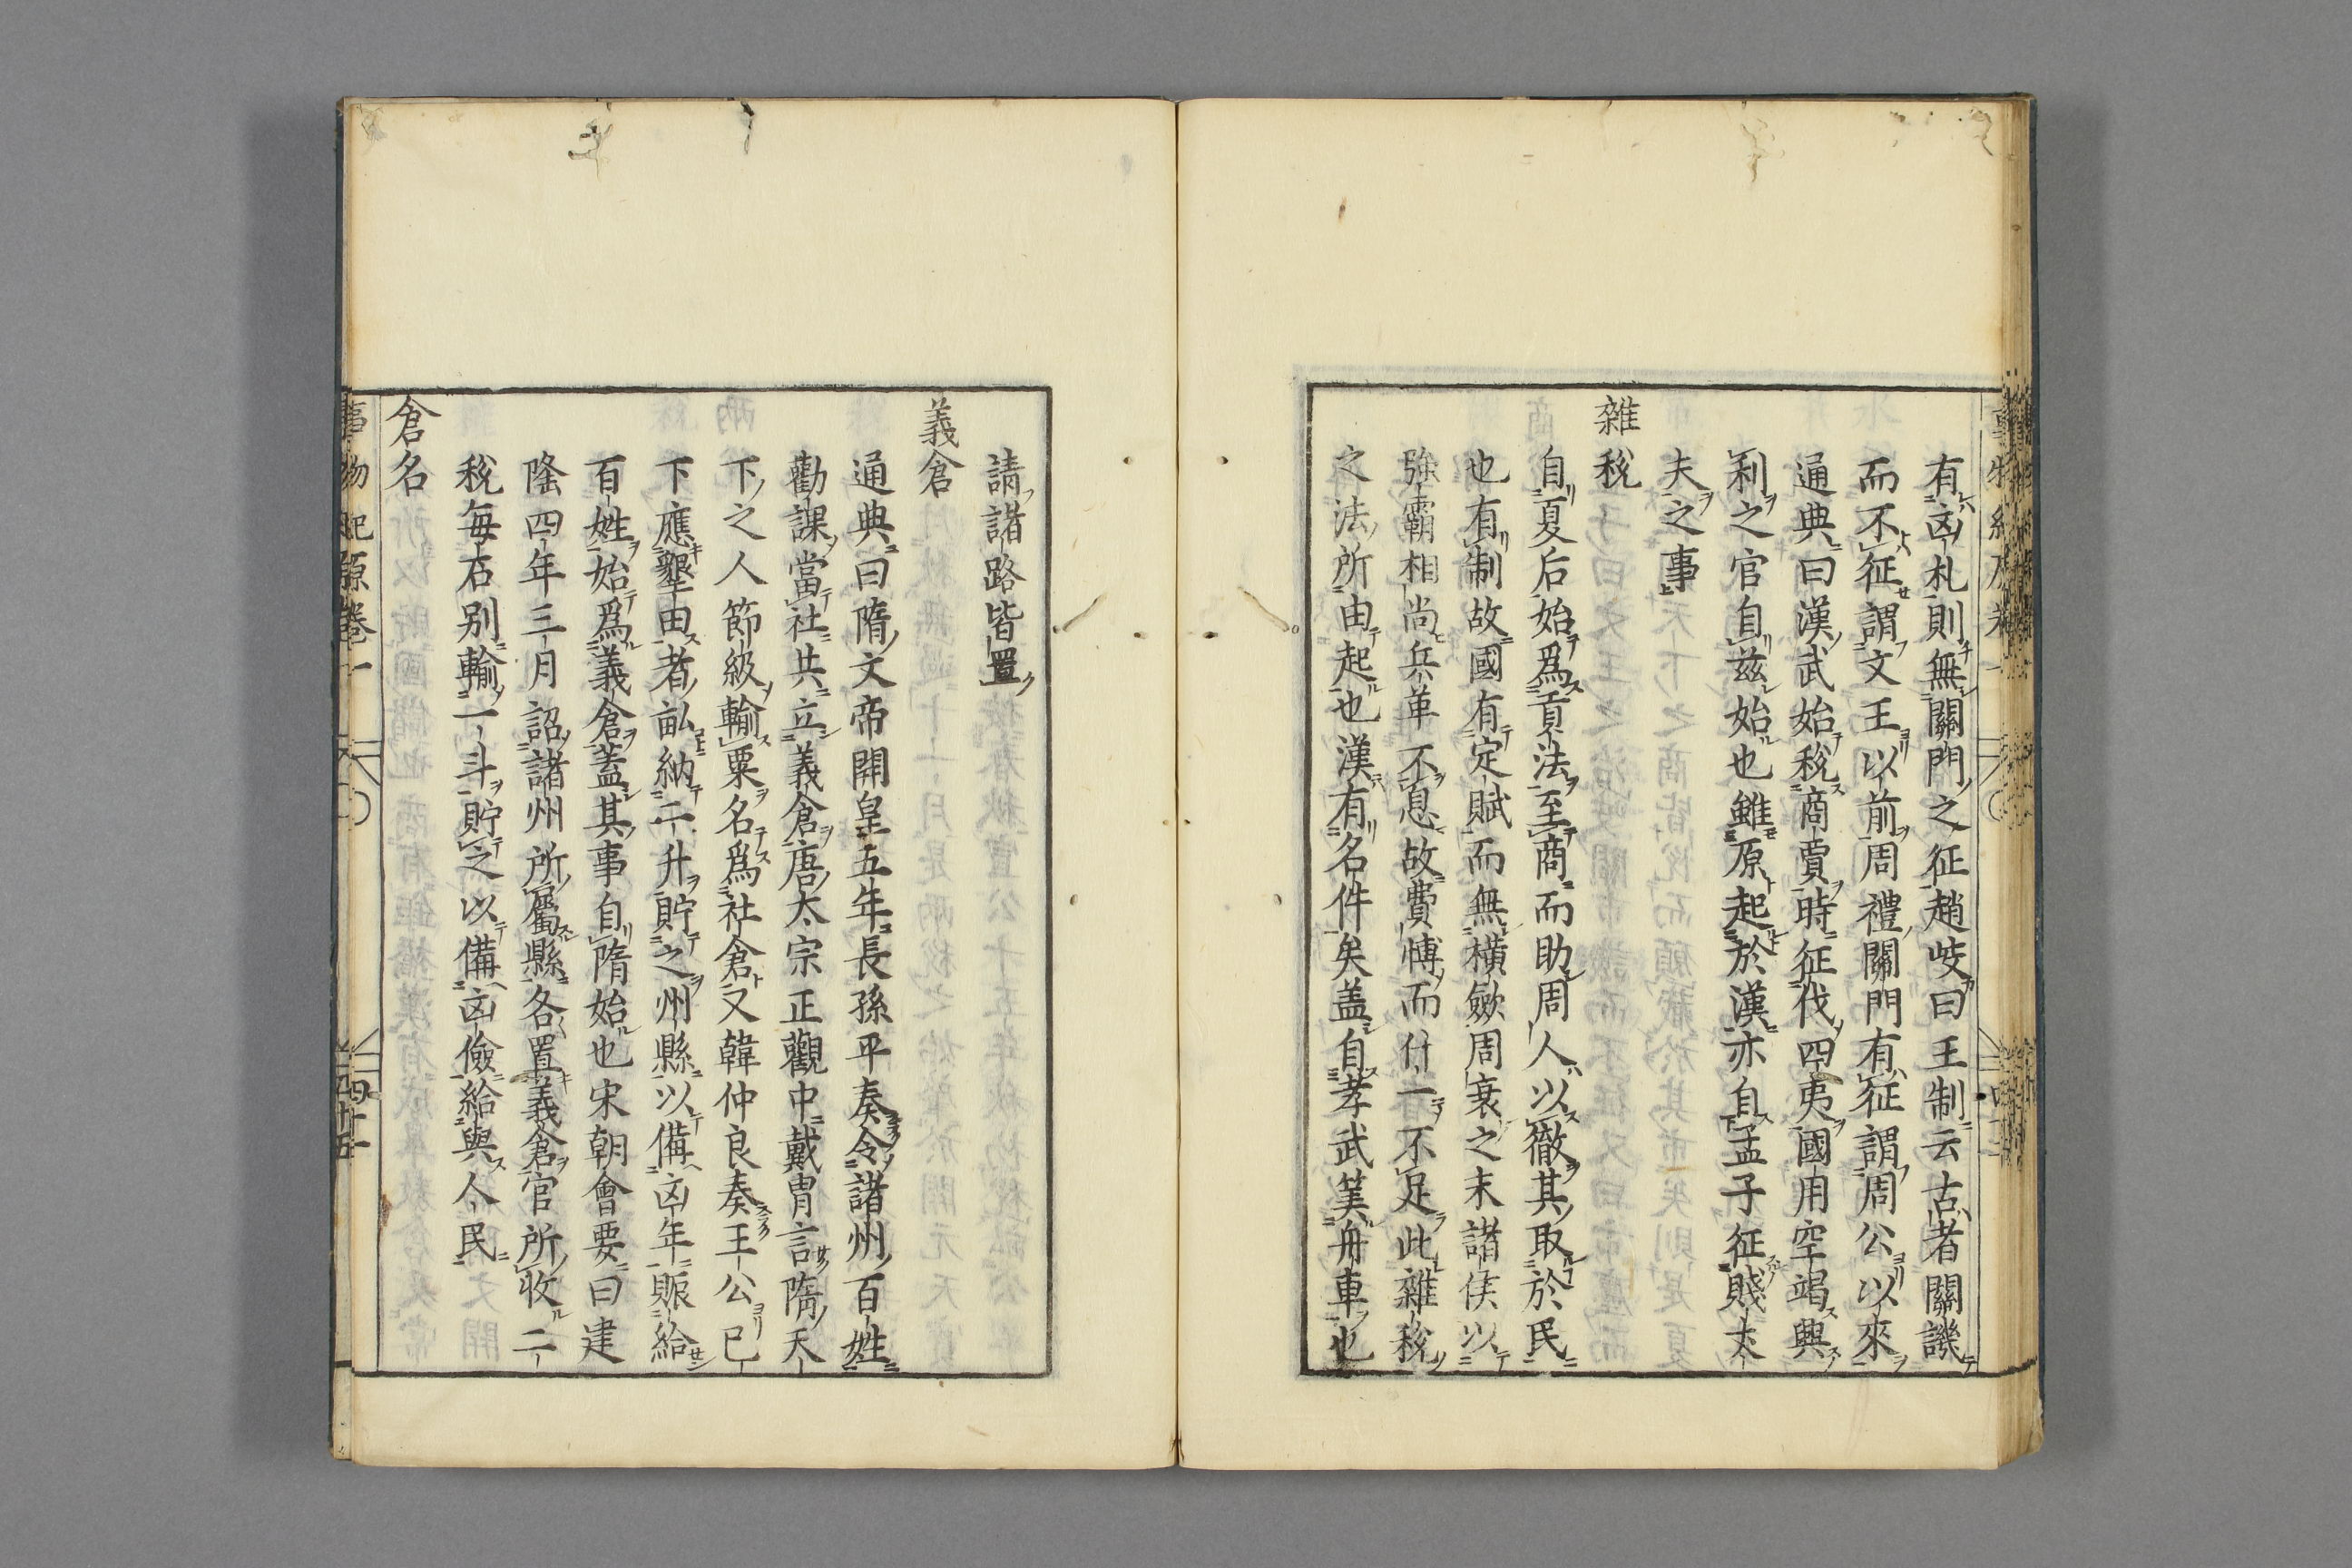 有凶札則無關門之征趙岐曰王制云古者關譏
而不征謂文王以前周禮關門有征謂周公以來
通典曰漢武始稅商賈時征伐四夷國用空竭興
利之官自茲始也雖原起於漢亦自孟子征賤丈
夫之事
雜稅
自夏后始爲貢法至商而助周人以徹其取於民
也有制故國有定賦而無橫歛周衰之末諸侯以
強霸相尚兵革不息故費愽而什一不足此雜稅
之法所由起也漢有名件矣盖自孝武筭舟車也
請諸路皆置
義倉
通典曰隋文帝開皇五年長孫平奏令諸州百姓
勸課當社共立義倉唐太宗正觀中戴胄言隋天
下之人節級輸粟名爲社倉又韓仲良奏王公已
下應墾由者畝納二升貯之州縣以備凶年賑給
百姓始爲義倉蓋其事自隋始也宋朝會要曰建
隆四年三月詔諸州所屬縣各置義倉官所收二
稅每石別輸一斗貯之以備凶儉給與人民
倉名
事物紀原卷一
四十五